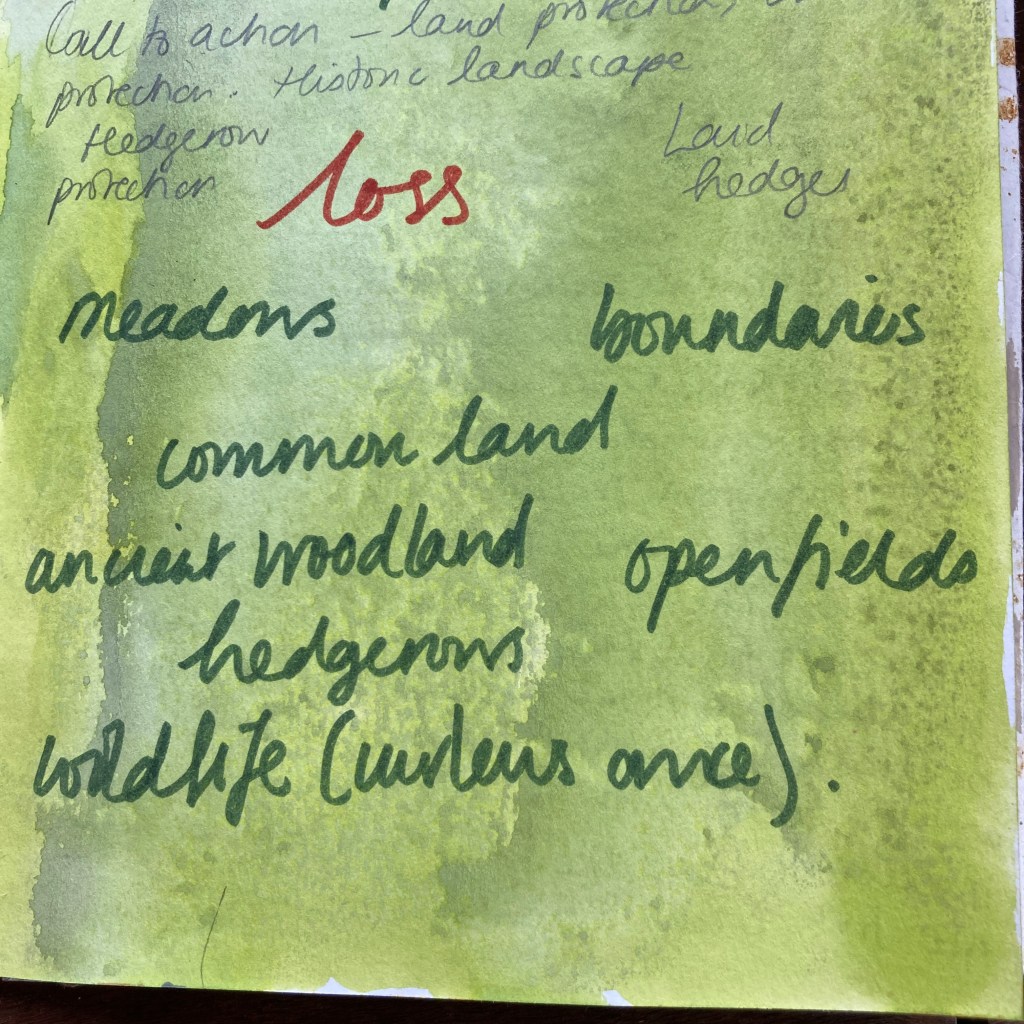 Call to action – land protection,
protection. Historic landscape
Hedgerow
protection
Laid
hedges
loss
meadows
boundaries
common land
ancient woodland
open fields
hedgerows
wildlife (curlews once).